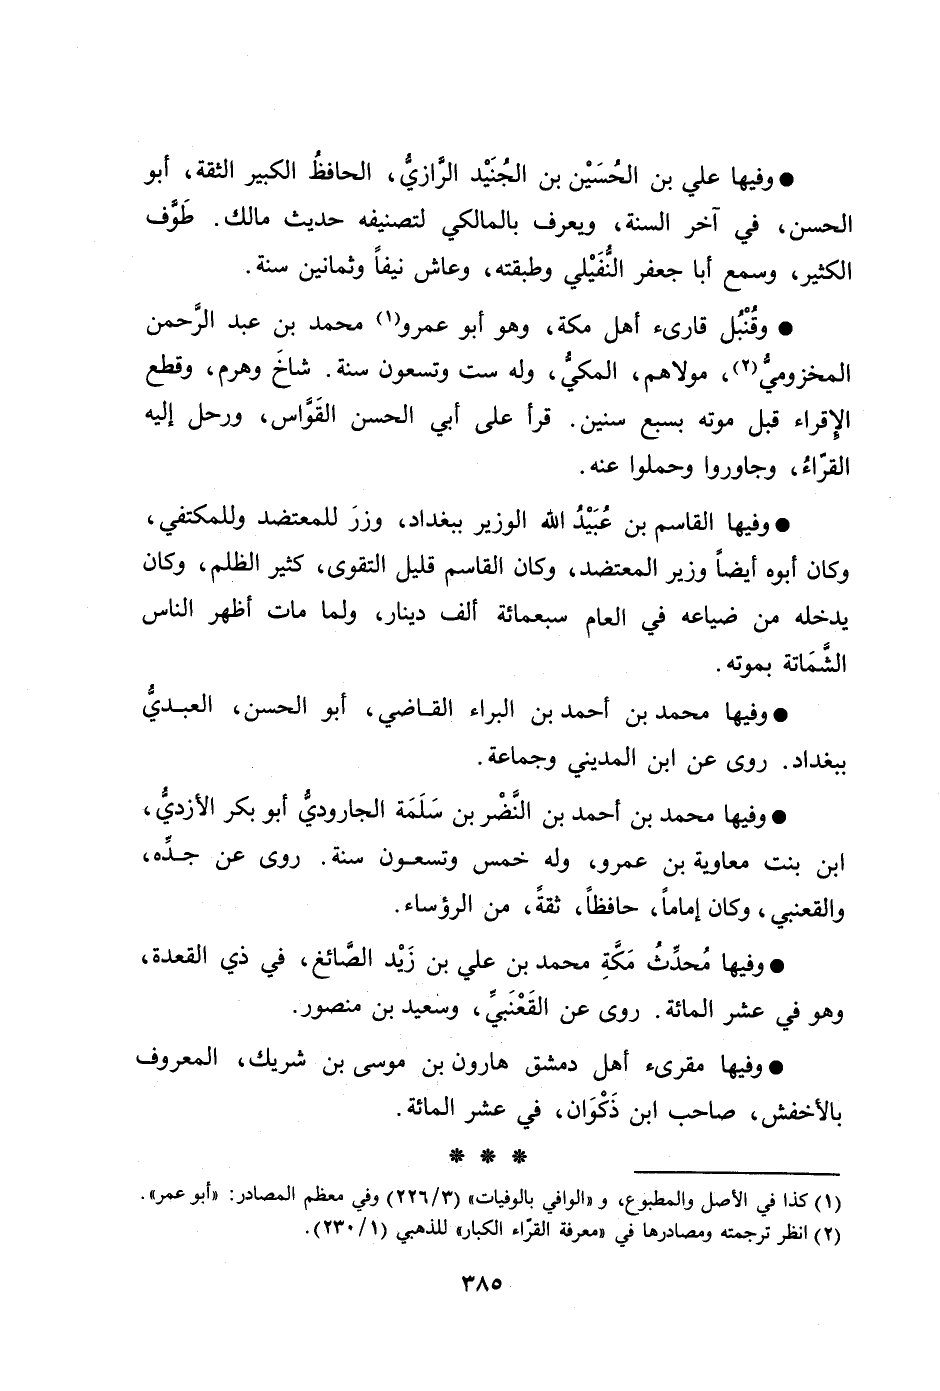 ● وفيها علي بن الحُسَيْن بن الجُنَيْد الرَّازيُّ، الحافظُ الكبير الثقة، أبو
الحسن، في آخر السنة، ويعرف بالمالكي لتصنيفه حديث مالك. طَوَّف
الكثير، وسمع أبا جعفر النُّفَيْلي وطبقته، وعاش نيفاً وثمانين سنة.
● وقُنْبُل قارىء أهل مكة، وهو أبو عمرو(١) محمد بن عبد الرَّحمن
المخزوميُّ(٢)، مولاهم، المكيُّ، وله ست وتسعون سنة. شاخَ وهرم، وقطع
الإِقراء قبل موته بسبع سنين. قرأ على أبي الحسن القَوَّاس، ورحل إليه
القرّاءُ، وجاوروا وحملوا عنه.
● وفيها القاسم بن عُبَيْدُ الله الوزير ببغداد، وزرَ للمعتضد وللمكتفي،
وكان أبوه أيضاً وزير المعتضد، وكان القاسم قليل التقوى، كثير الظلم، وكان
يدخله من ضياعه في العام سبعمائة ألف دينار، ولما مات أظهر الناس
الشَّمَاتة بموته.
● وفيها محمد بن أحمد بن البراء القاضي، أبو الحسن، العبديُّ
ببغداد. روى عن ابن المديني وجماعة.
● وفيها محمد بن أحمد بن النَّضْر بن سَلَمَة الجاروديُّ أبو بكر الأزديُّ،
ابن بنت معاوية بن عمرو، وله خمس وتسعون سنة. روى عن جدِّه،
والقعنبي، وكان إماماً، حافظاً، ثقةً، من الرؤساء.
● وفيها مُحدِّثُ مَكَّةِ محمد بن علي بن زَيْد الصَّائغ، في ذي القعدة،
وهو في عشر المائة. روى عن القَعْنَبيِّ، وسعيد بن منصور.
● وفيها مقرىء أهل دمشق هارون بن موسى بن شريك، المعروف
بالأخفش، صاحب ابن ذَكْوَان، في عشر المائة.
* * *
(١) كذا في الأصل والمطبوع، و «الوافي بالوفيات» (٢٢٦/٣) وفي معظم المصادر: «أبو عمر».
(٢) انظر ترجمته ومصادرها في «معرفة القرّاء الكبار» للذهبي (٢٣٠/١).
٣٨٥